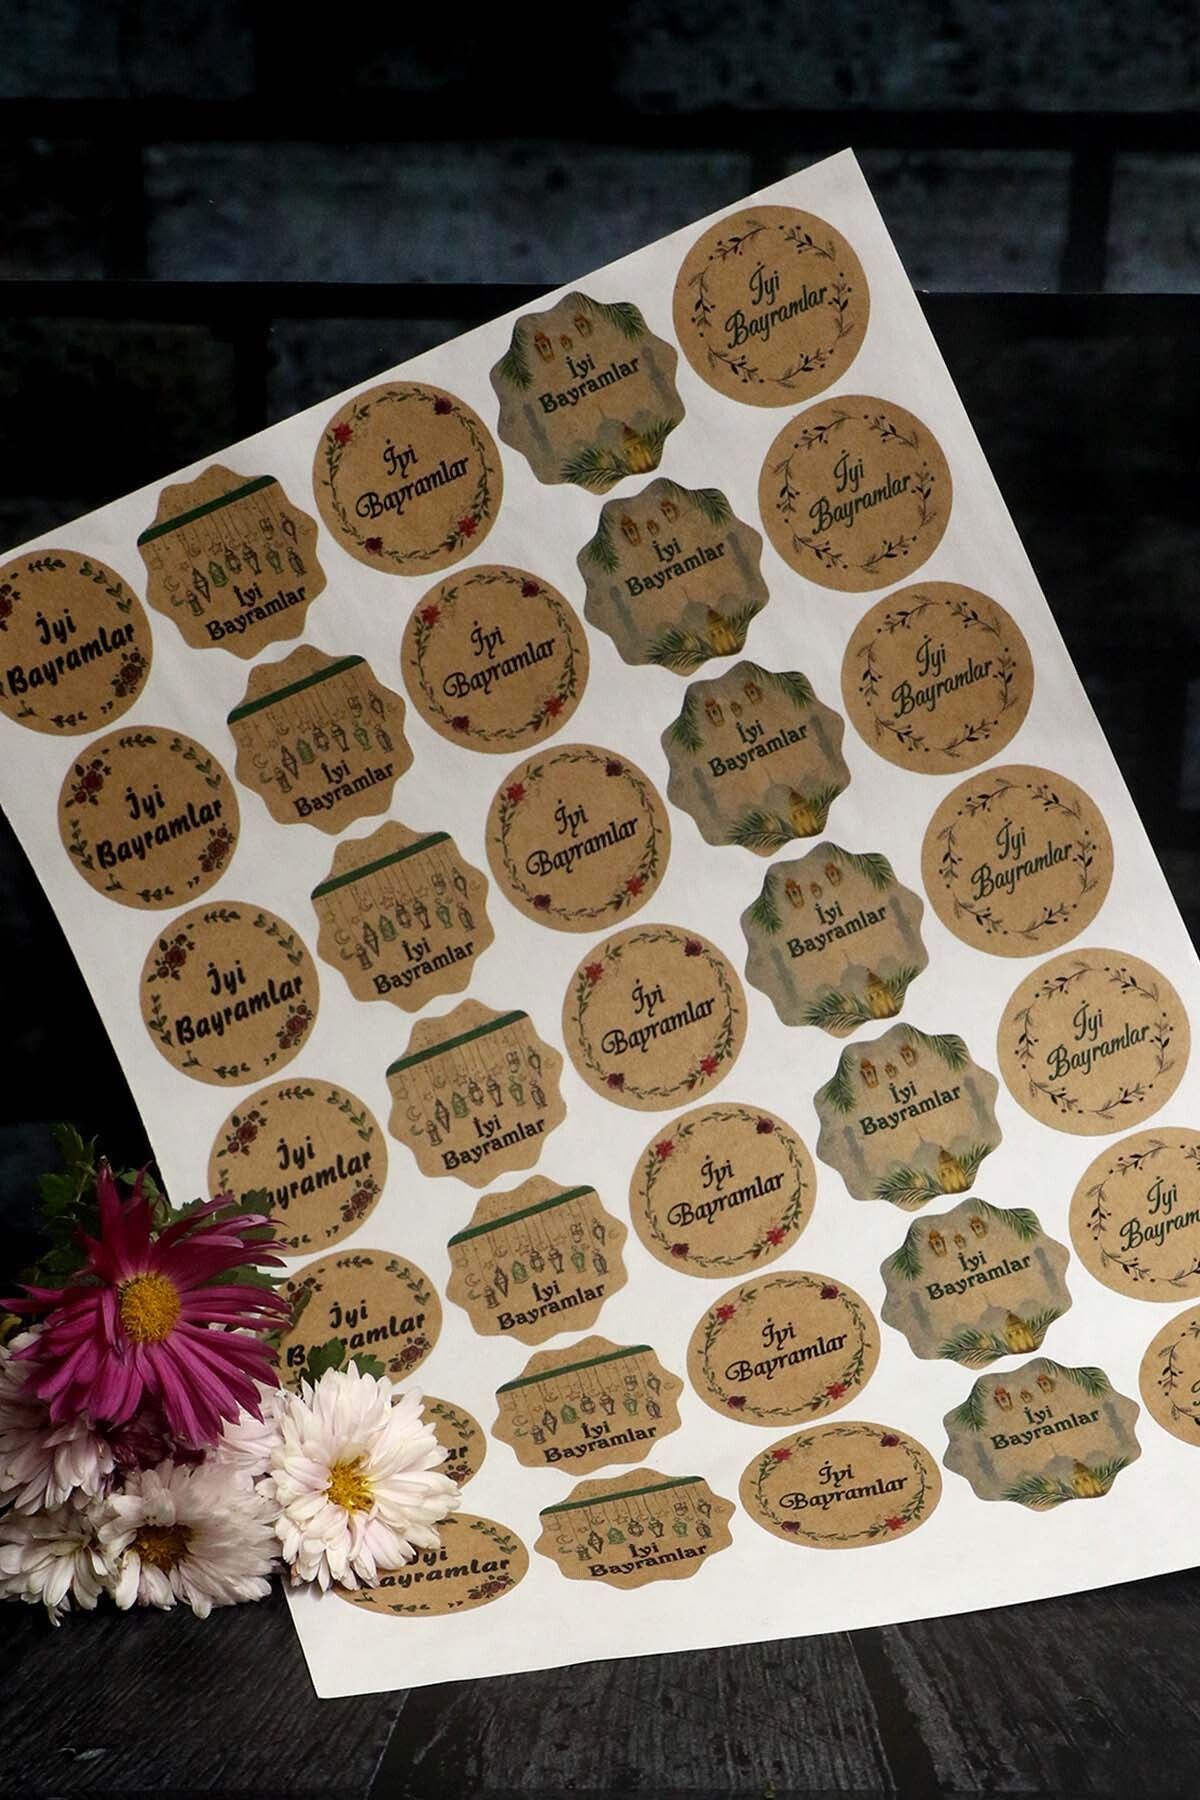 İyi
Bayramlar
İyi
Bayramlar
İyi
Bayramlar
İyi
ayramlar
İyi
B ramlar
ar
yi
ayramlar
İyi
Bayramlar
İyi
Bayramlar
İyi
Bayramlar
İyi
Bayramlar
İyi
Bayramlar
İyi
Bayramlar
İyi
Bayramlar
İyi
Bayramlar
İyi
Bayramlar
İyi
Bayramlar
İyi
Bayramlar
İyi
Bayramlar
İyi
Bayramlar
İyi
Bayramlar
İyi
Bayramlar
İyi
Bayramlar
İyi
Bayramlar
İyi
Bayramlar
İyi
Bayramlar
İyi
Bayramlar
İyi
Bayramlar
İyi
Bayramlar
İyi
Bayramlar
İyi
Bayramlar
İyi
Bayramlar
İyi
Bayramlar
İyi
Bayram